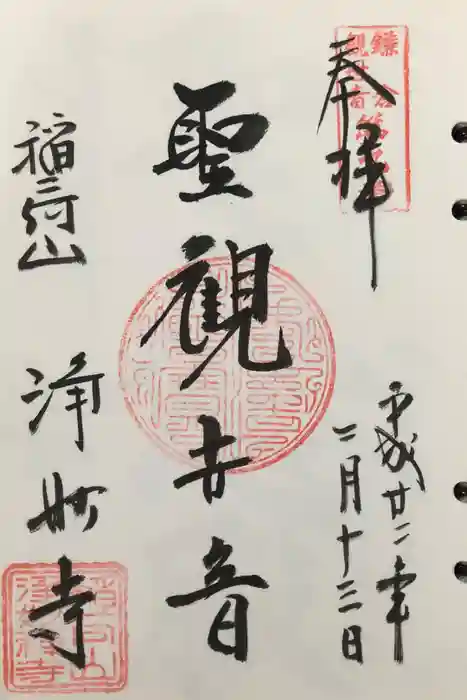 奉拝
平成廿二年
二月十三日
聖観世音
稲荷山
浄妙寺